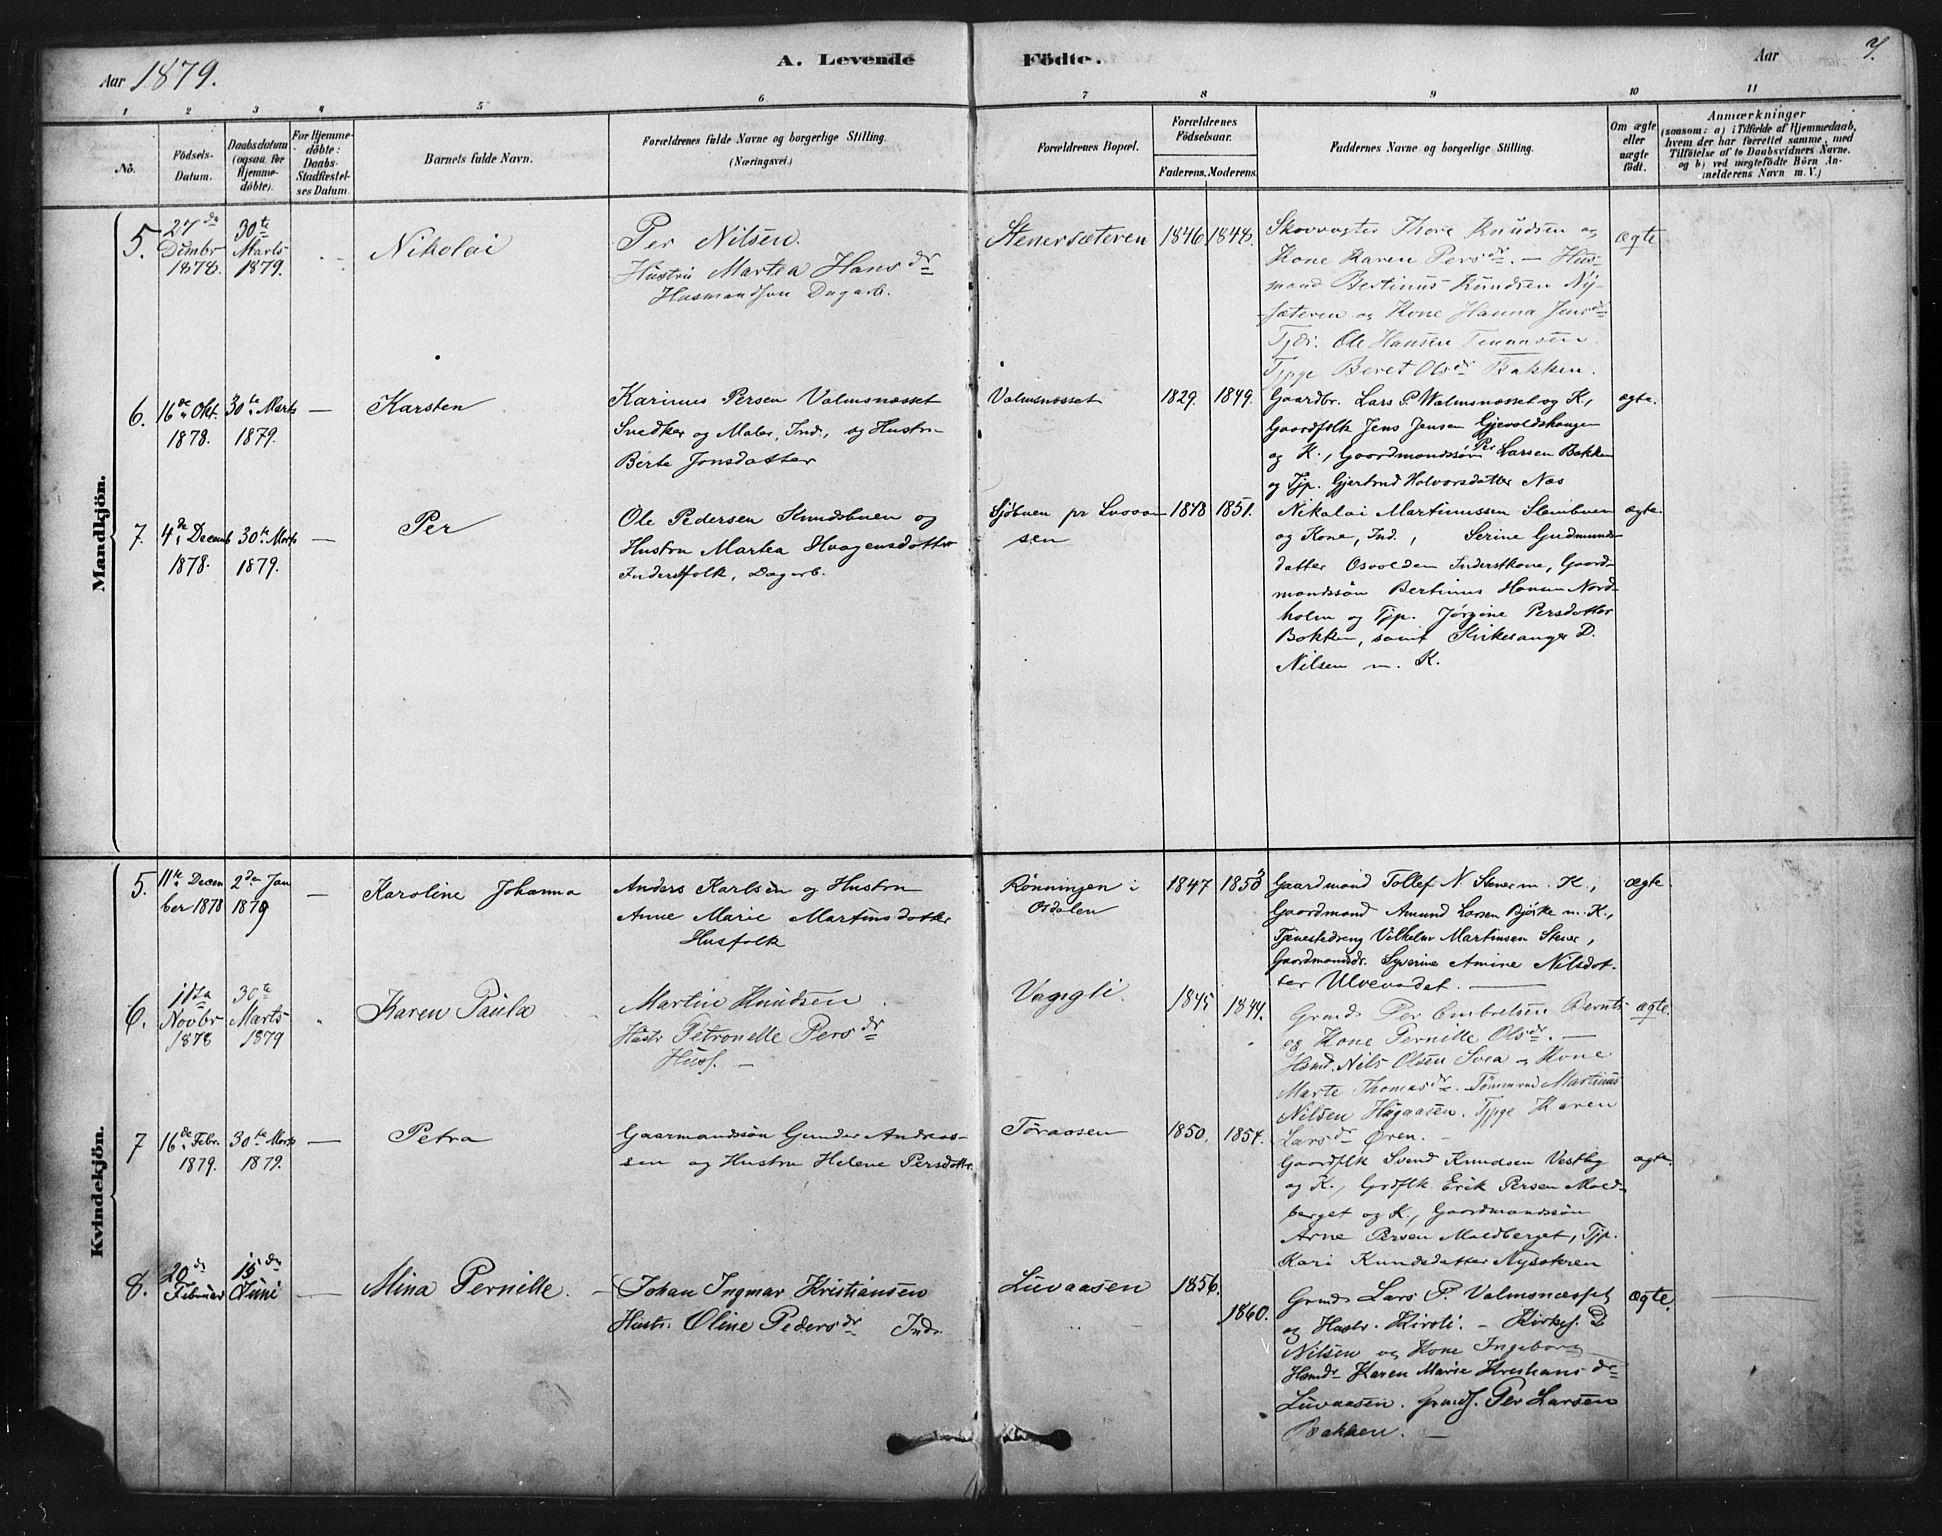 Aar 1879.
A. Levende Födte.
Aar
7.
1 2 3 4 5 6 7 8 9 10 11
No.
Födsels-
Datum.
Daabsdatum
(ogsaa for
Hjemme-
döbte).
For Hjemme-
döbte:
Daabs-
Stadfæstel-
ses Datum.
Barnets fulde Navn.
Forældrenes fulde Navne og borgerlige Stilling.
(Næringsvei.)
Forældrenes Bopæl.
Forældrenes
Födselsaar.
Faderens. Moderens.
Faddernes Navne og borgerlige Stilling.
Om ægte
eller
uægte
födt.
Anmærkninger
(saasom: a) i Tilfælde af Hjemmedaab,
hvem der har forrettet samme, med
Tilföielse af to Daabsvidners Navne.
og b) ved uægtefödte Börn An-
melderens Navn m. V.)
Mandkjön.
5.
27de
Dcmbr
1878.
30te
Marts
1879.
Nikolai
Per Nilsen.
Hustru Martea Hansdr
Husmandsson Dagarb.
Stenersæteren
1846 1848.
Skovvogter Thore Knudsen og
Kone Karen Persdr. — Hus-
mand Bertinus Knudsen Ny-
sæteren og Kone Hanna Jensdr
Ole Hansen
Tjpge Beret Olsdr Bakken.
ægte
6.
16de Okt.
1878.
30te Marts
1879.
—
Karsten
Karinus Persen Valmsnæsset
Snedker og Maler, Ind., og Hustru
Berte Jonsdatter
Valmsnæsset
1829. 1849.
Gaardbr. Lars P. Walmsnæsset og K,
Gaardfolk Jens Jensen Gjevoldshaugen
og K., Gaardmandssøn Per Larsen Bakken
og Tjp. Gjertrud Halvorsdatter Næs
ægte.
7.
4de Decemb
1878.
30te Marts
1879.
—
Per
Ole Pedersen Knudsbuen og
Hustru Martea Haagensdatter
Inderstfolk, Dagarb.
Sjøbuen pr Luvaa-
sen
1848 1851.
Nikolai Martinussen Stenbuen
og Kone, Ind., Serine Gudmunds-
datter Osvolden Inderstkone, Gaard-
mandssøn Bertinus Hansen Nord-
holm og Tjp. Jørgine Persdatter
Bakken, samt Kirkesanger D.
Nilsen m. K.
ægte.
Kvindekjön.
5.
11te Decem
ber 1878
2den Jan
1879
—
Karoline Johanna
Anders Karlsen og Hustru
Anne Marie Martinsdatter
Husfolk
Rønningen i
Osdalen
1847 1853
Gaardmand Tollef N. Stener m. K.,
Gaardmand Amund Larsen Bjørke m. K.,
Tjenestedreng Vilhelm Martinsen Stener,
Gaardmandsdr. Syverine Amine Nilsdat-
ter Ulvevadet. —
ægte
6.
1ste
Novbr
1878
30te
Marts
1879
Karen Paula
Martin Knudsen
Hustr Petronelle Persdr
Husf. —
Vaggli.
1845 1844.
Grmds Per Embretsen Bernts
og Kone Pernille Olsdr. —
Hsmd. Nils Olsen Svea og Kone
Marte Thomasdr. Tømmermd Martinus
Nilsen Hagaasen. Tjpge Karen
Larsdr Øren. —
ægte.
7
16de Febr.
1879.
30te Marts
1879.
—
Petra
Gaarmandssøn Gunder Andreas-
sen og Hustru Helene Persdatter
Tøraasen
1850. 1854.
Gaardflk Svend Knudsen Vestby
og K., Grdflk Erik Persen Mold-
berget og K., Gaardmandssøn
Arne Persen Moldberget, Tjp.
Kari Knudsdatter Nysæteren
ægte.
8.
20de
Februar
15de
Juni
—
Mina Pernille. —
Johan Ingmar Kristiansen
Hustr: Oline Pedersdr Inds
Luvaasen
1856.
1860.
Grmds Lars P. Valmsnæsset
og Hustr. Kirsti. — Kirkes. D
Nilsen og Kone Ingeborg
Hsmds Karen Marie Kristiansdr
Luvaasen. Grmds. Per Larsen
Bakken. —
ægte.